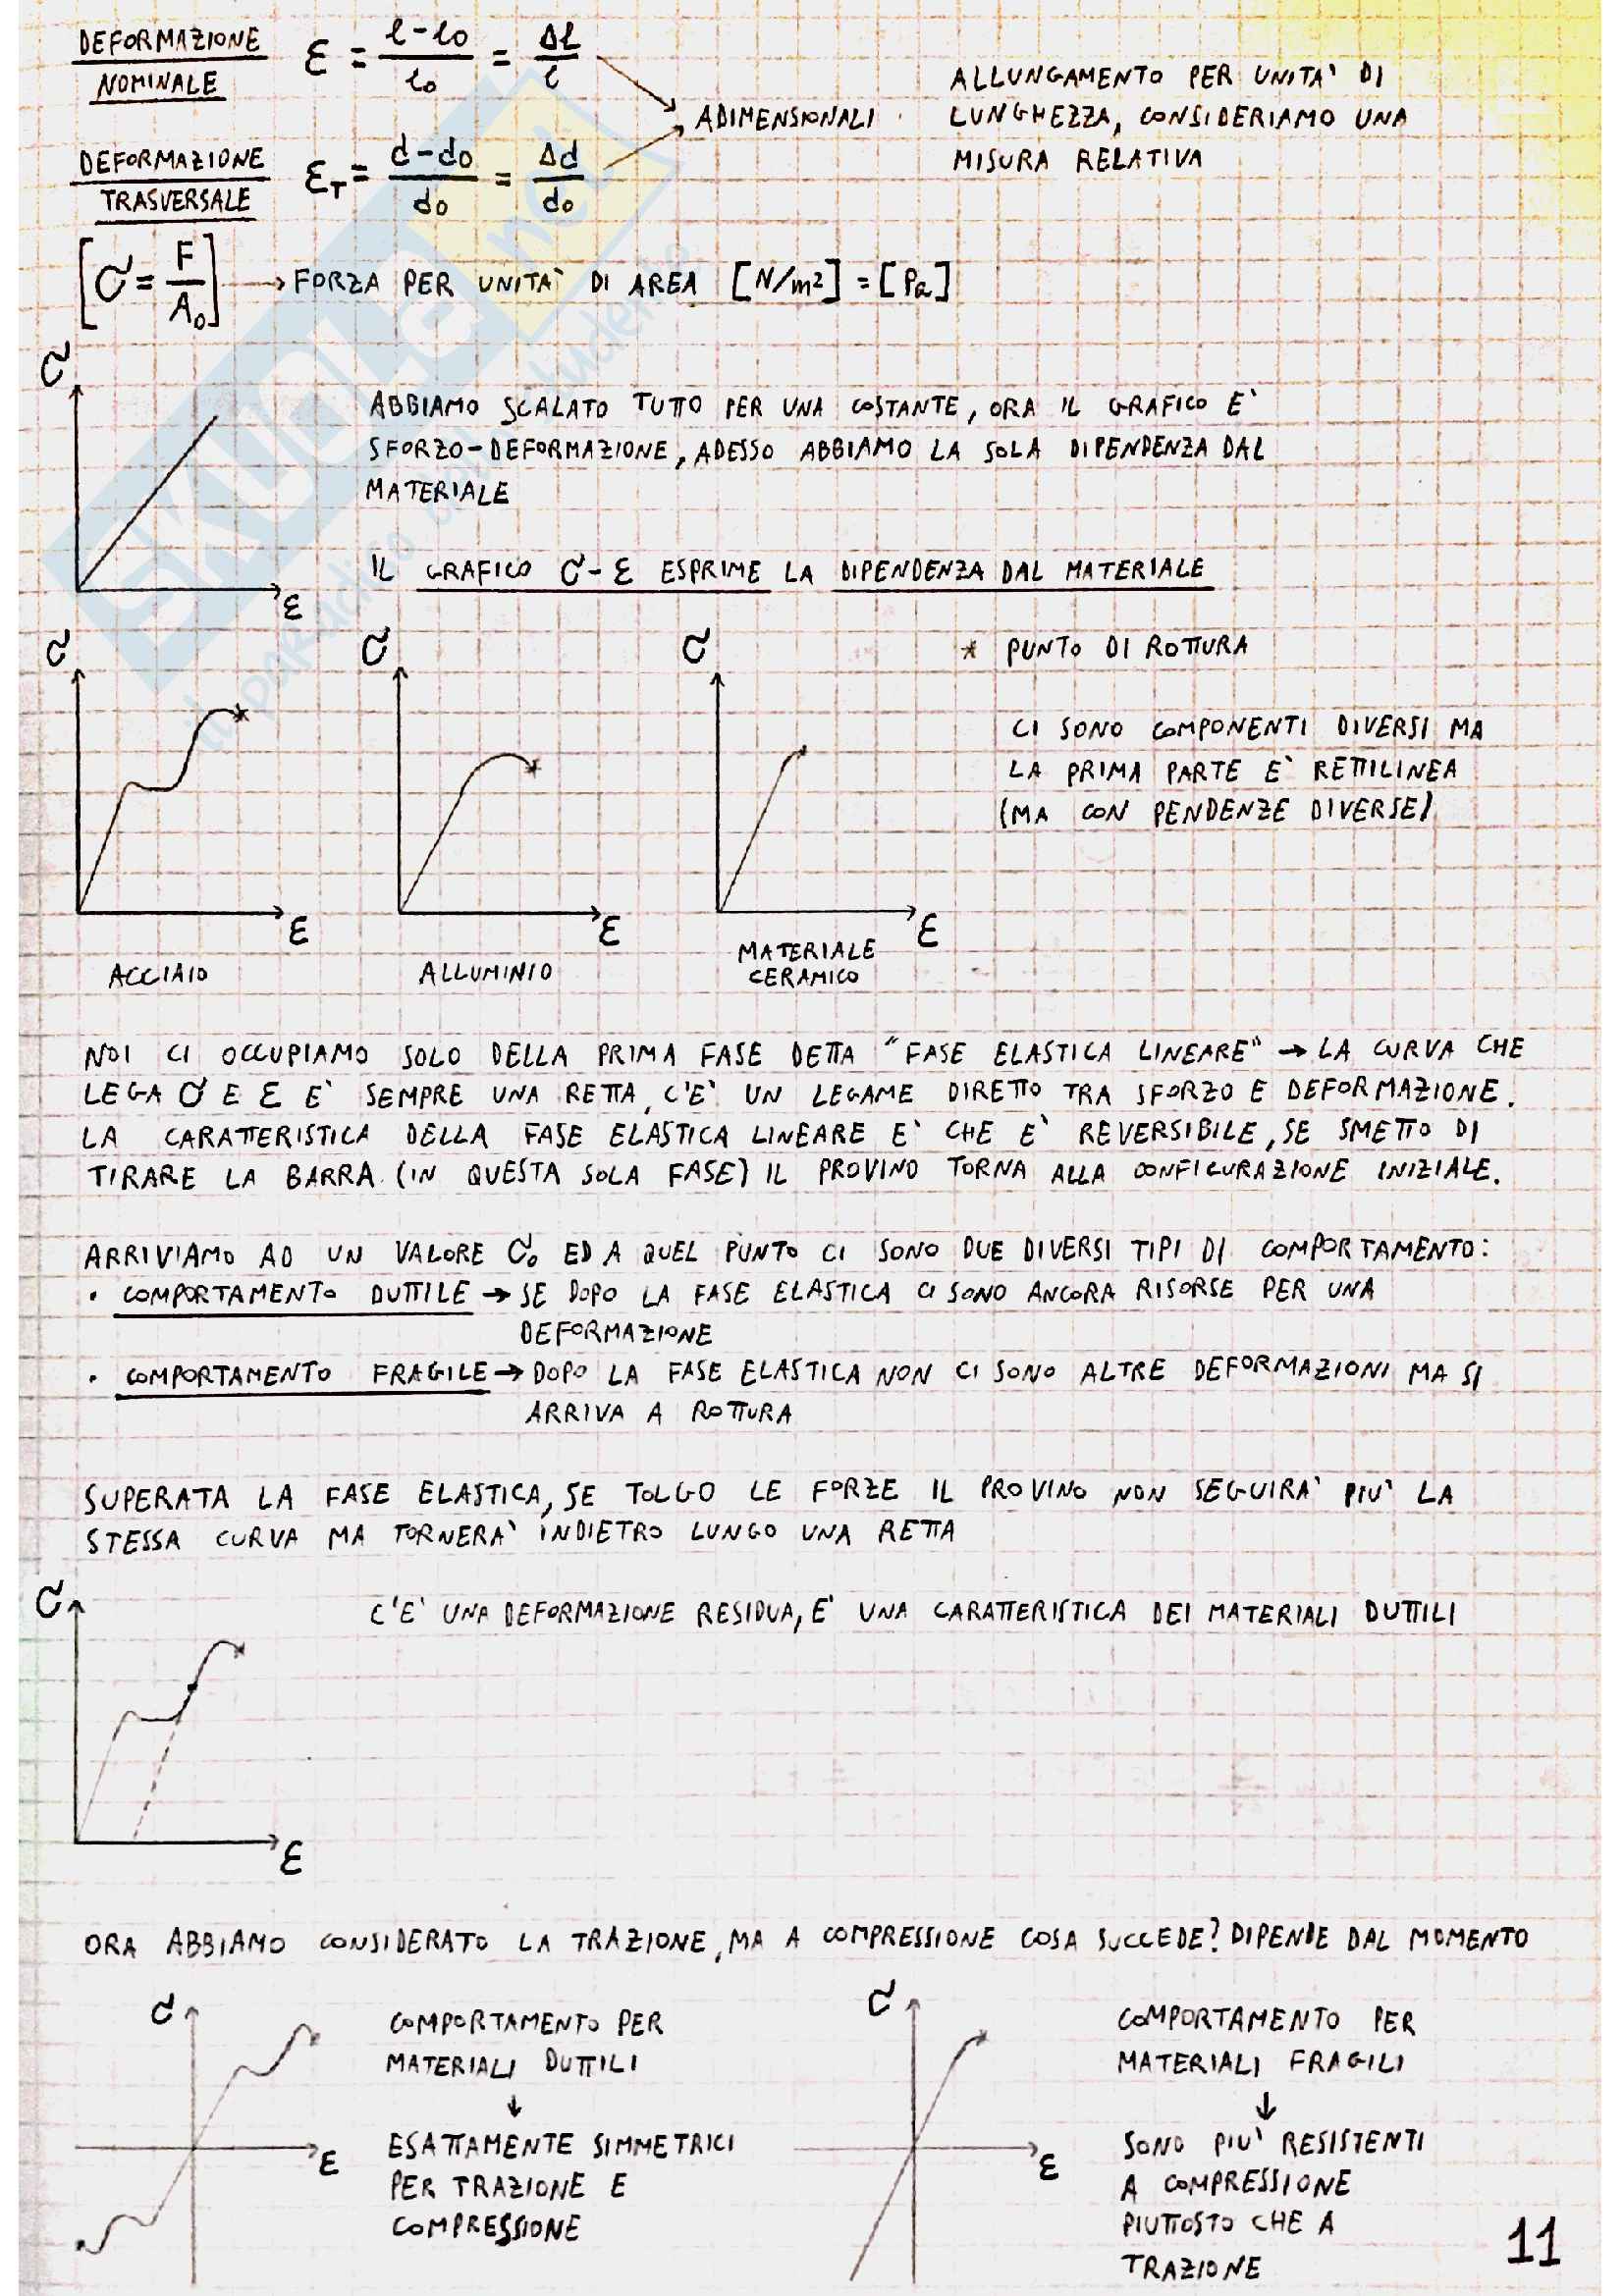 DEFORMAZIONE NOMINALE ε = l-l0/l0 = Δl/l
ADIMENSIONALI
ALLUNGAMENTO PER UNITA' DI
LUNGHEZZA, CONSIDERIAMO UNA
MISURA RELATIVA
DEFORMAZIONE TRASVERSALE εT = d-d0/d0 = Δd/d0
[σ = F/A0] → FORZA PER UNITA' DI AREA [N/m²] = [Pa]
σ
ABBIAMO SCALATO TUTTO PER UNA COSTANTE, ORA IL GRAFICO E'
SFORZO-DEFORMAZIONE, ADESSO ABBIAMO LA SOLA DIPENDENZA DAL
MATERIALE
IL GRAFICO σ-ε ESPRIME LA DIPENDENZA DAL MATERIALE
ε
σ σ σ
* PUNTO DI ROTTURA
CI SONO COMPONENTI DIVERSI MA
LA PRIMA PARTE E' RETTILINEA
(MA CON PENDENZE DIVERSE)
ε ε ε
ACCIAIO
ALLUMINIO
MATERIALE
CERAMICO
NOI CI OCCUPIAMO SOLO DELLA PRIMA FASE DETTA "FASE ELASTICA LINEARE" → LA CURVA CHE
LEGA σ E ε E' SEMPRE UNA RETTA, C'E' UN LEGAME DIRETTO TRA SFORZO E DEFORMAZIONE.
LA CARATTERISTICA DELLA FASE ELASTICA LINEARE E' CHE E' REVERSIBILE, SE SMETTO DI
TIRARE LA BARRA (IN QUESTA SOLA FASE) IL PROVINO TORNA ALLA CONFIGURAZIONE INIZIALE.
ARRIVIAMO AD UN VALORE σ0 ED A QUEL PUNTO CI SONO DUE DIVERSI TIPI DI COMPORTAMENTO:
• COMPORTAMENTO DUTTILE → SE DOPO LA FASE ELASTICA CI SONO ANCORA RISORSE PER UNA
DEFORMAZIONE
• COMPORTAMENTO FRAGILE → DOPO LA FASE ELASTICA NON CI SONO ALTRE DEFORMAZIONI MA SI
ARRIVA A ROTTURA
SUPERATA LA FASE ELASTICA, SE TOLGO LE FORZE IL PROVINO NON SEGUIRA' PIU' LA
STESSA CURVA MA TORNERA' INDIETRO LUNGO UNA RETTA
σ
C'E' UNA DEFORMAZIONE RESIDUA, E' UNA CARATTERISTICA DEI MATERIALI DUTTILI
ε
ORA ABBIAMO CONSIDERATO LA TRAZIONE, MA A COMPRESSIONE COSA SUCCEDE? DIPENDE DAL MOMENTO
σ
COMPORTAMENTO PER
MATERIALI DUTTILI
↓
ESATTAMENTE SIMMETRICI
PER TRAZIONE E
COMPRESSIONE
ε
σ
COMPORTAMENTO PER
MATERIALI FRAGILI
↓
SONO PIU' RESISTENTI
A COMPRESSIONE
PIUTTOSTO CHE A
TRAZIONE
ε
11
SKUOLA.net